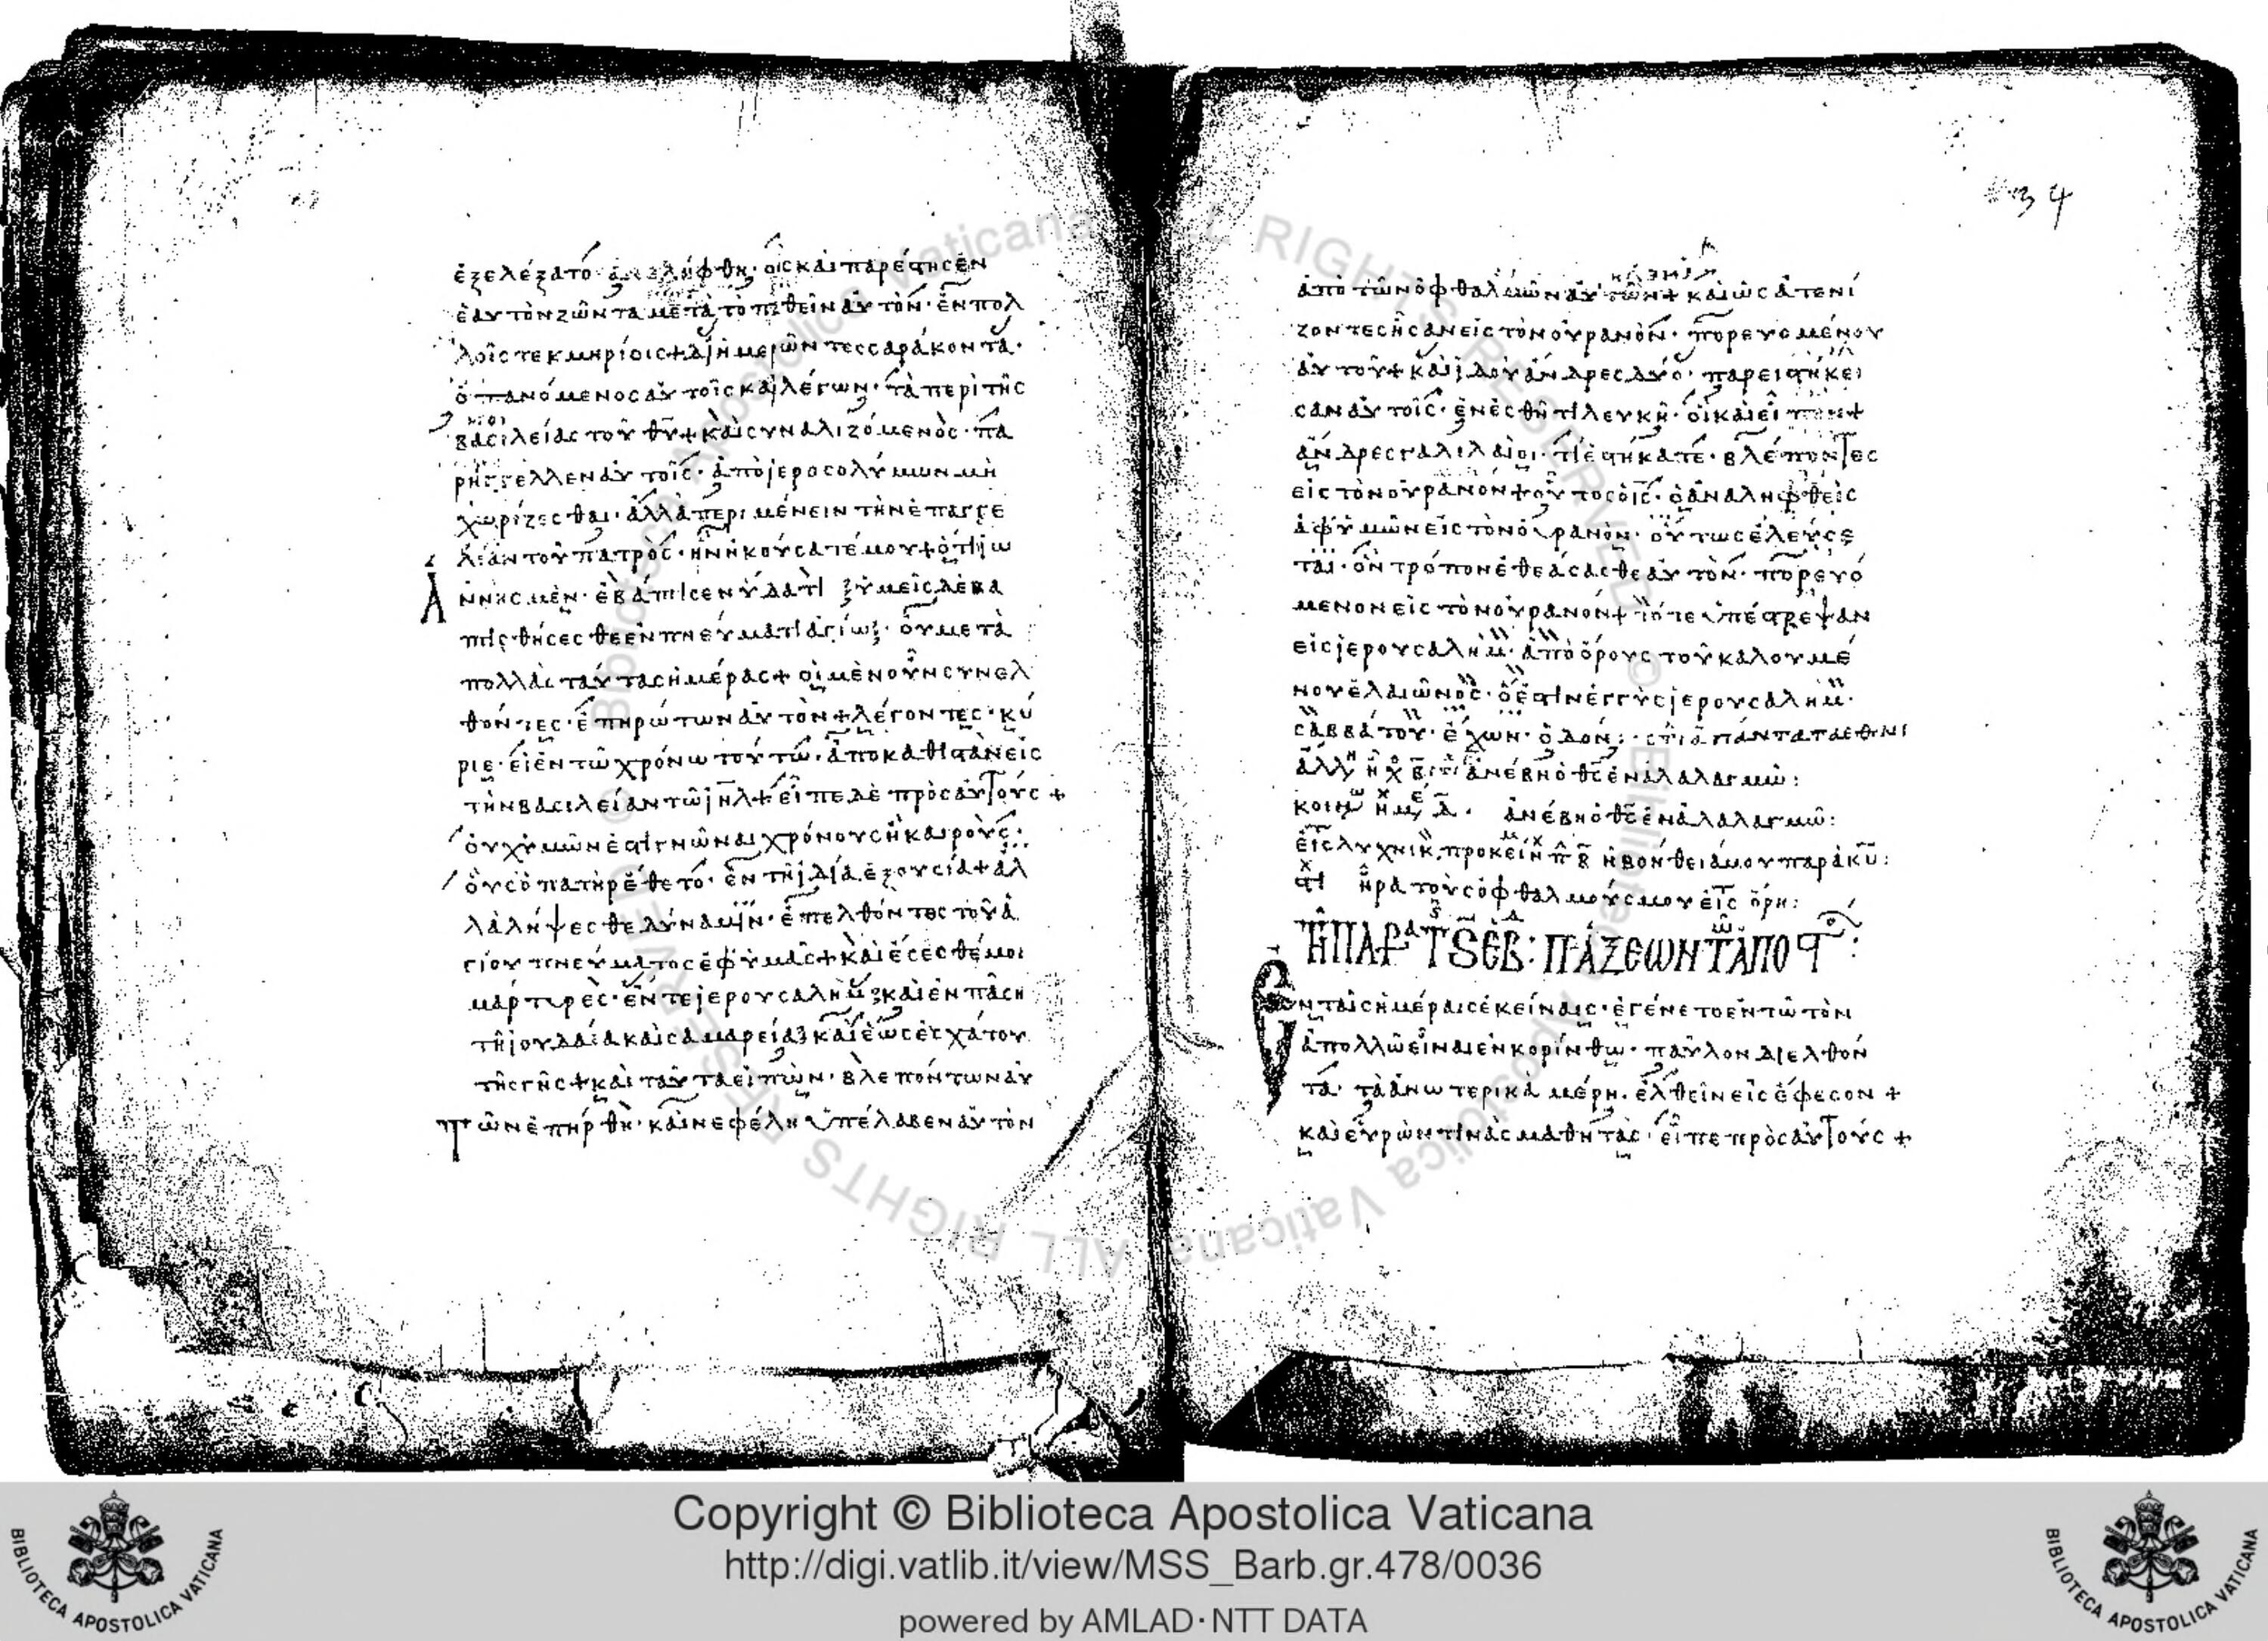 ἐξελέξατο ἀνελήφθη· οἷς καὶ παρέστησεν
ἑαυτὸν ζῶντα μετὰ τὸ παθεῖν αὐτόν· ἐν πολ
λοῖς τεκμηρίοις + δι ἡμερῶν τεσσαράκοντα·
ὀπτανόμενος αὐτοῖς καὶ λέγων· τὰ περὶ τῆς
βασιλείας τοῦ θυ + καὶ συναλιζόμενος· πα
ρήγγελλεν αὐτοῖς· ἀπὸ ϊεροσολύμων μὴ
χωρίζεσθαι· ἀλλὰ περιμένειν τὴν ἐπαγγε
λίαν τοῦ πατρὸς· ἣν ἠκούσατέ μου + ὅτι ϊω
άννης μὲν· ἐβάπτισεν ὕδατι ὑμεῖς δὲ βα
πτισθήσεσθε ἐν πνεύματι ἁγίω· οὐ μετὰ
πολλὰς ταύτας ἡμέρας + οἱ μὲν οὖν συνελ
θόντες· ἐπηρώτων αὐτὸν + λέγοντες· κύ
ριε· εἰ ἐν τῶ χρόνω τούτω· ἀποκαθιστάνεις
τὴν βασιλείαν τῶ ιηλ + εἶπε δὲ πρὸς αὐτούς +
οὐχ ὑμῶν ἐστὶ γνῶναι χρόνους ἢ καιροὺς·
οὓς ὁ πατὴρ ἔθετο· ἐν τῆ ϊδία ἐξουσία + ἀλ
λὰ λήψεσθε δύναμιν· ἐπελθόντος τοῦ ἁ
γίου πνεύματος ἐφ ὑμᾶς + καὶ ἔσεσθέ μοι
μάρτυρες· ἔν τε ϊερουσαλὴμ καὶ ἐν πάση
τῆ ϊουδαία καὶ σαμαρεία καὶ ἕως ἐσχάτου
τῆς γῆς + καὶ ταῦτα εἰπὼν· βλεπόντων αὐ
τῶν ἐπήρθη· καὶ νεφέλη ὑπέλαβεν αὐτὸν
34
ἀπὸ τῶν ὀφθαλμῶν αὐτῶν + καὶ ὡς ἀτενί
ζοντες ἦσαν εἰς τὸν οὐρανὸν· πορευομένου
αὐτοῦ + καὶ ϊδοὺ ἄνδρες δύο· παρειστήκει
σαν αὐτοῖς· ἐν ἐσθῆτι λευκῆ· οἳ καὶ εἶπον +
ἄνδρες γαλιλαῖοι· τί ἐστήκατε· βλέποντες
εἰς τὸν οὐρανόν + οὗτος ὁ ις· ὁ ἀναληφθεὶς
ἀφ ὑμῶν εἰς τὸν οὐρανὸν· οὕτως ἐλεύσε
ται· ὃν τρόπον ἐθεάσασθε αὐτὸν· πορευό
μενον εἰς τὸν οὐρανόν + τότε ὑπέστρεψαν
εἰς ϊερουσαλὴμ· ἀπὸ ὄρους τοῦ καλουμέ
νου ἐλαιῶνος· ὅ ἐστιν ἐγγὺς ϊερουσαλὴμ·
σαββάτου· ἔχων· ὁδόν:
ἀνέβη ὁ θς ἐν ἀλαλαγμῶ:
ἀνέβη ὁ θς ἐν ἀλαλαγμῶ:
ἡ βοήθειά μου παρὰ κυ:
ἦρα τοὺς ὀφθαλμούς μου εἰς ὄρη:
ν ταῖς ἡμέραις ἐκείναις· ἐγένετο ἐν τῶ τὸν
ἀπολλὼ εἶναι ἐν κορίνθω· παῦλον διελθόν
τα τὰ ἀνωτερικὰ μέρη· ἐλθεῖν εἰς ἔφεσον +
καὶ εὑρών τινας μαθητὰς· εἶπε πρὸς αὐτούς +
Copyright © Biblioteca Apostolica Vaticana
http://digi.vatlib.it/view/MSS_Barb.gr.478/0036
powered by AMLAD·NTT DATA
BIBLIOTECA APOSTOLICA VATICANA
BIBLIOTECA APOSTOLICA VATICANA